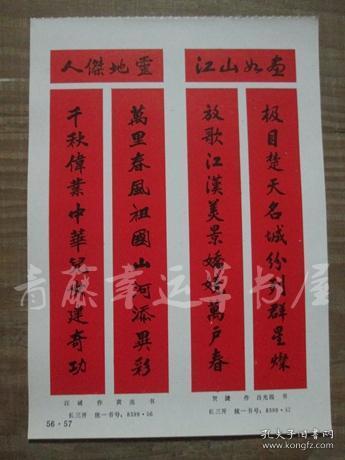 江山如畫
极目楚天名城纷列群星燦
放歌江漢美景嬌嬈萬戶春
人傑地靈
萬里春風祖國山河添異彩
千秋偉業中華兒女建奇功
青藤幸运草书屋
作 黄亮 书
长三开 统一书号：8389·56
贺捷 作 吕光振 书
长三开 统一书号：8389·57
56·57
孔夫子旧书网